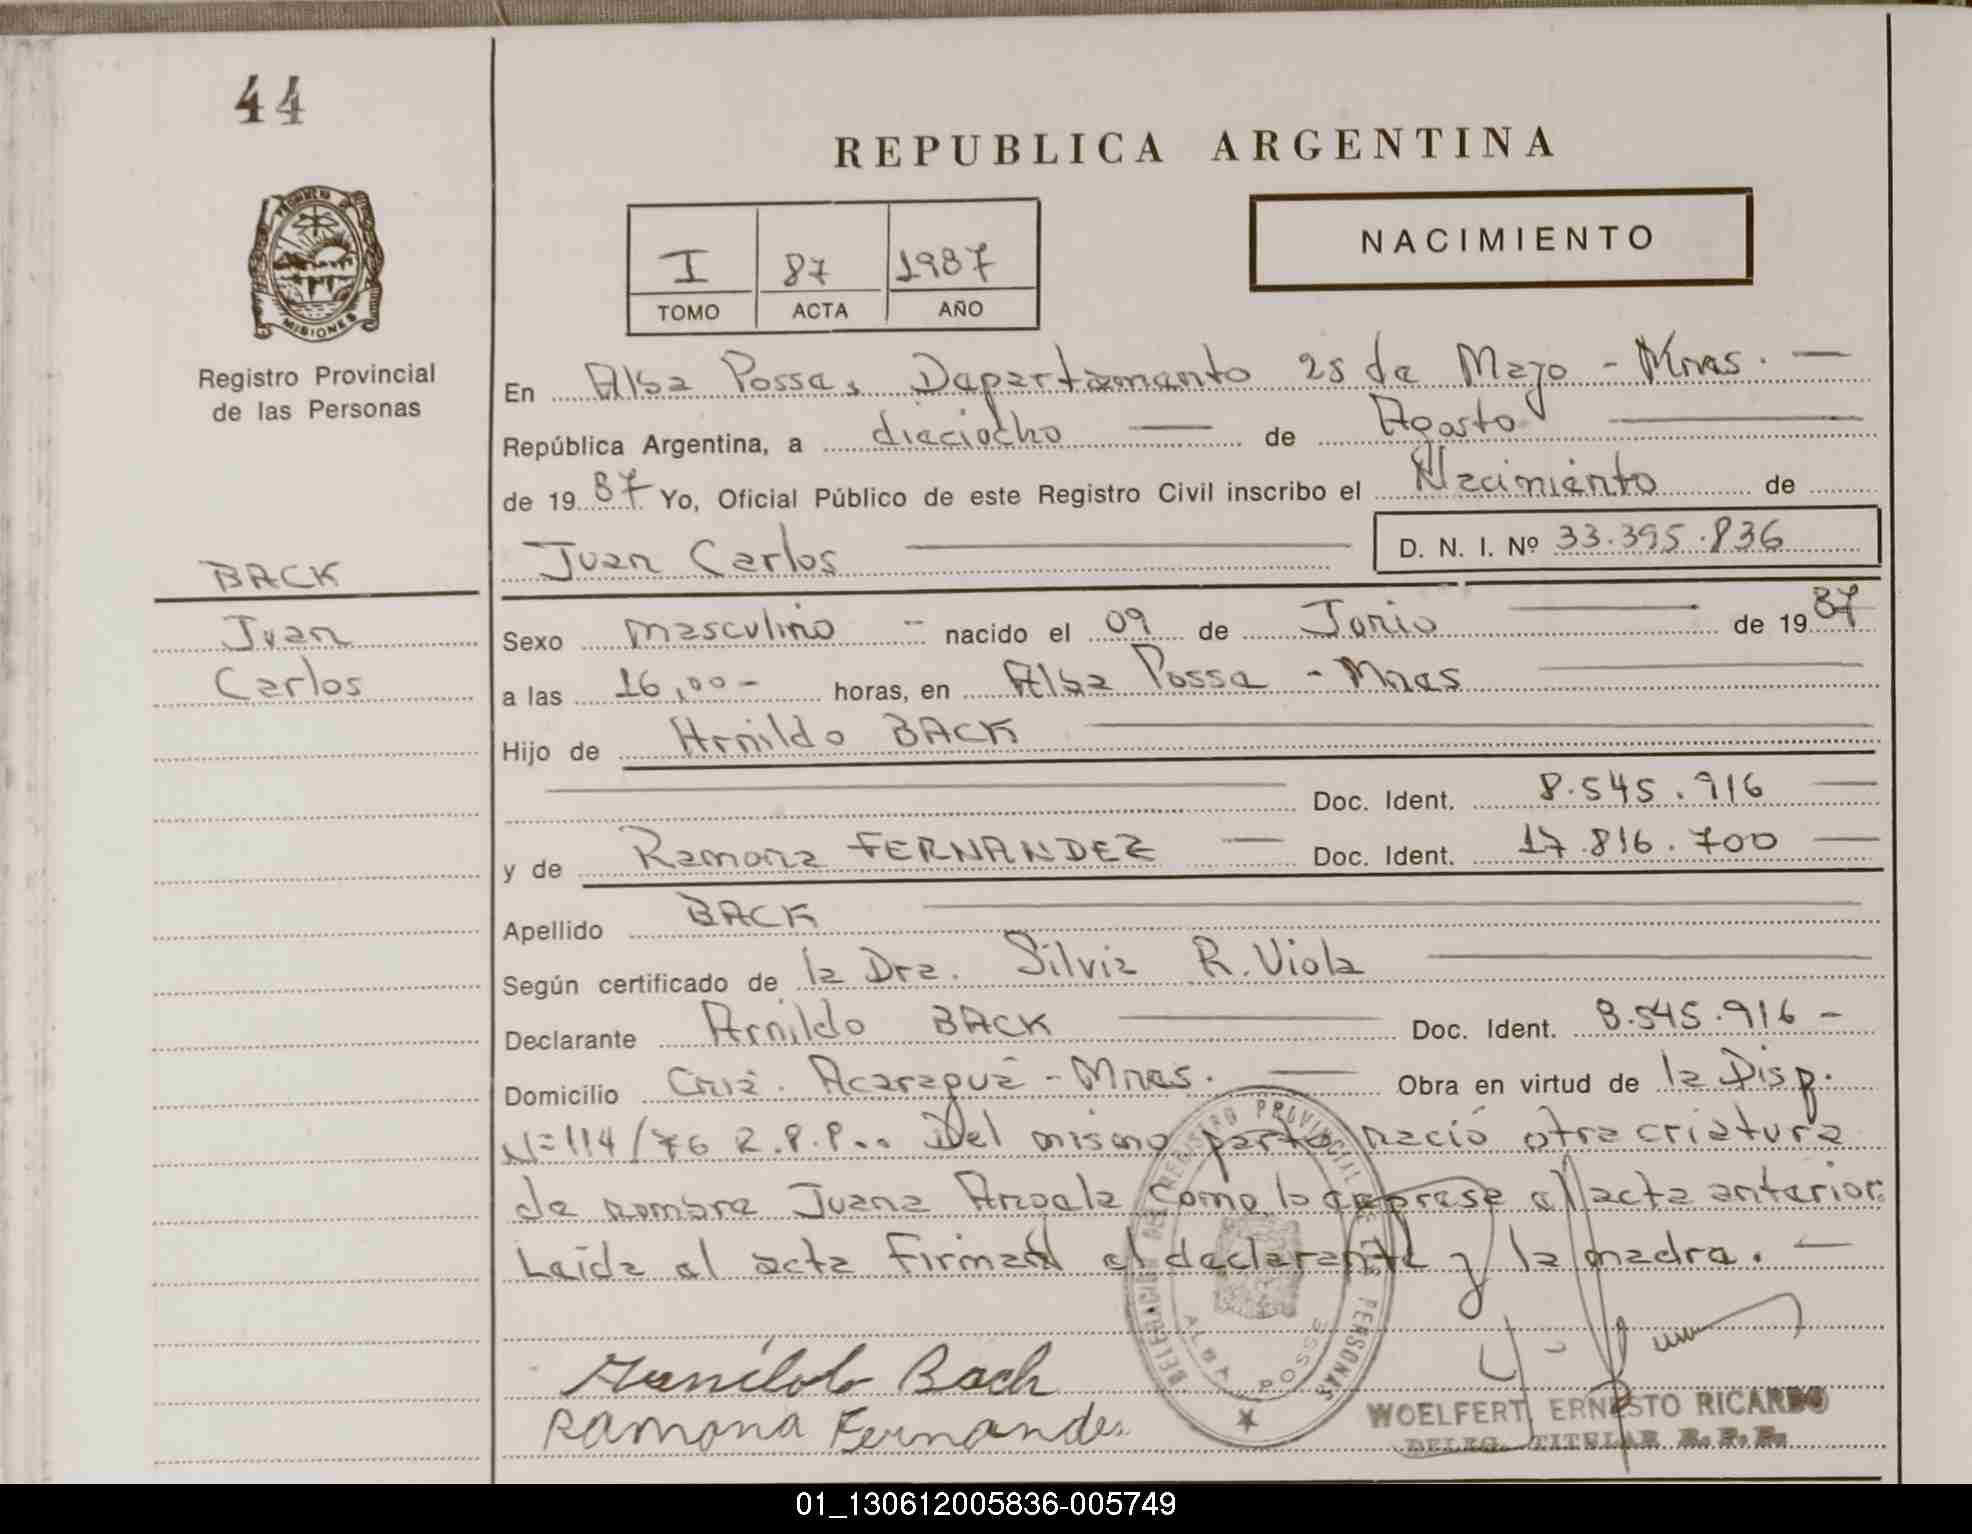 44
REPUBLICA ARGENTINA
PROVINCIA DE
MISIONES
Registro Provincial
de las Personas
NACIMIENTO
I 87 1987
TOMO ACTA AÑO
En Alba Posse, Departamento 25 de Mayo - Mnes. —
República Argentina, a dieciocho — de Agosto —
de 1987 Yo, Oficial Público de este Registro Civil inscribo el Nacimiento de
Juan Carlos — D. N. I. Nº 33.395.836
BACK
Juan
Carlos
Sexo masculino - nacido el 09 de Junio — de 1987
a las 16,00 - horas, en Alba Posse - Mnes —
Hijo de Arnildo BACK —
— Doc. Ident. 8.545.916 —
y de Ramona FERNANDEZ — Doc. Ident. 17.816.700 —
Apellido BACK —
Según certificado de la Dra. Silvia R. Viola —
Declarante Arnildo BACK — Doc. Ident. 8.545.916 -
Domicilio Cnia. Acaragua - Mnes. — Obra en virtud de la Disp.
Nº 114/76 R.P.P.. Del mismo parto nació otra criatura
de nombre Juana como lo exprese el acta anterior.
Leida el acta firman el declarante y la madre. —
Arnildo Back
Ramona Fernandez
DELEGACION DEL REGISTRO PROVINCIAL DE LAS PERSONAS
ALBA POSSE
WOELFERT ERNESTO RICARDO
DELEG. TITULAR R.P.P.
01_130612005836-005749